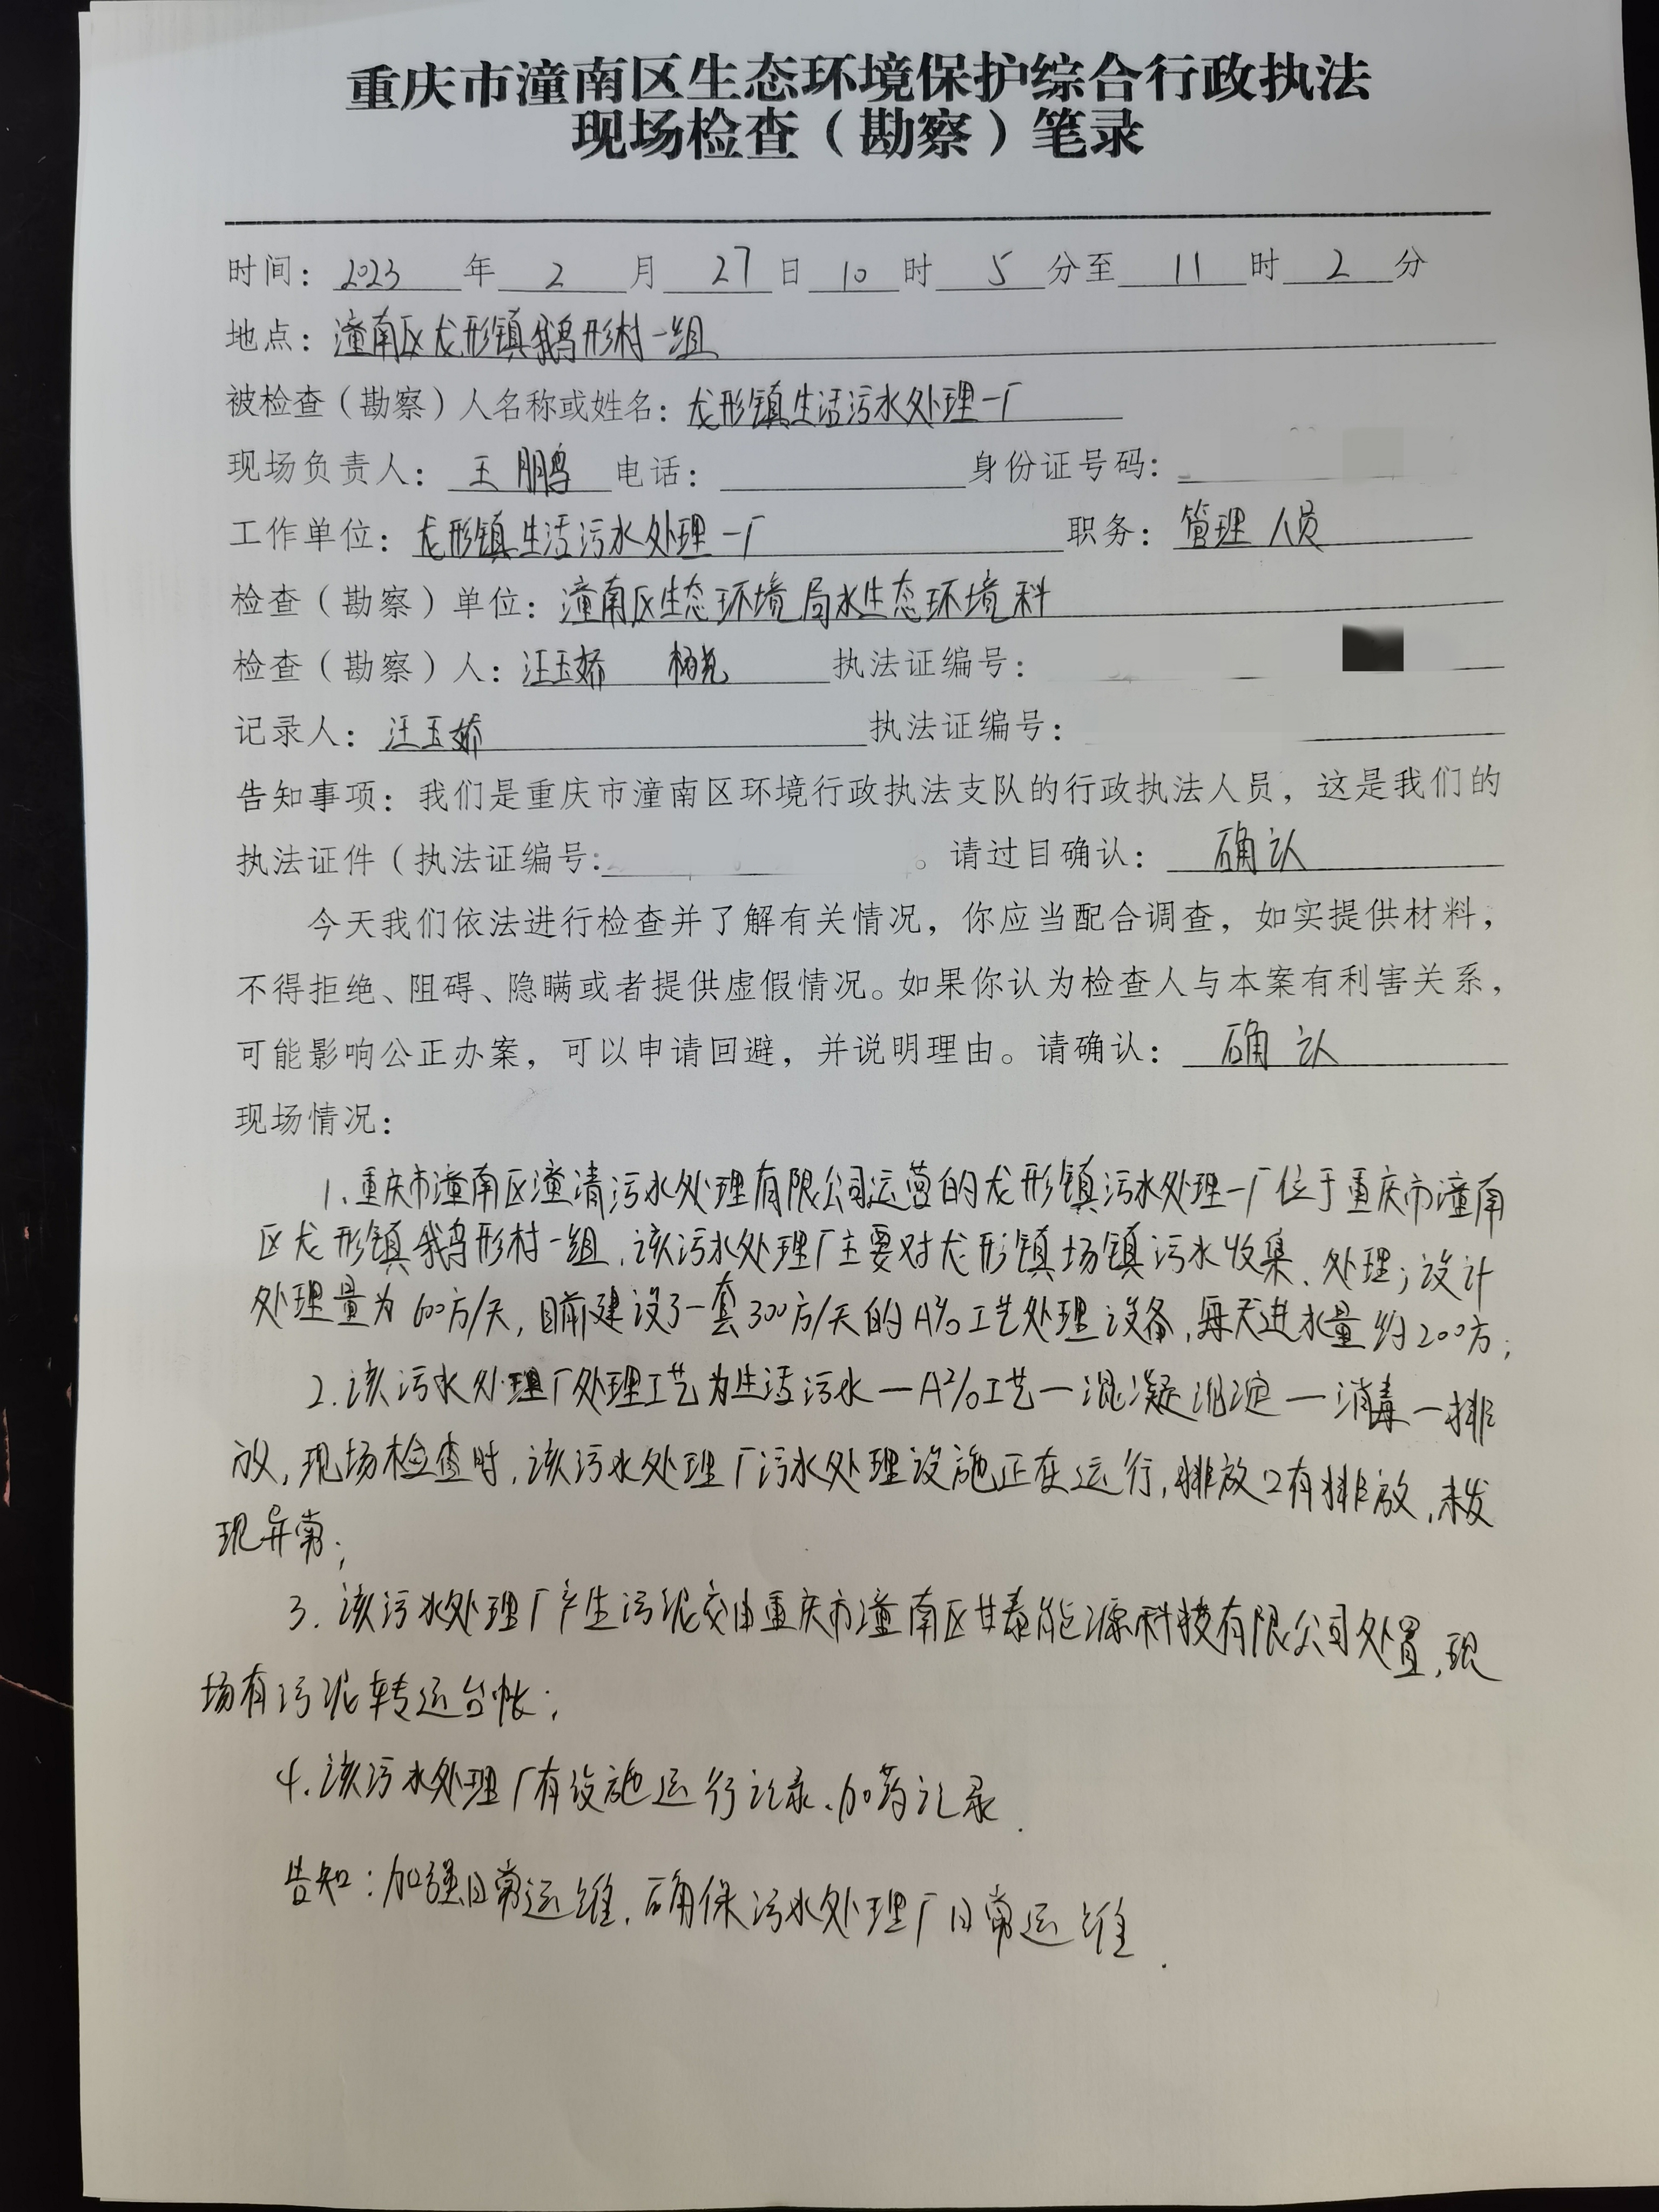 重庆市潼南区生态环境保护综合行政执法
现场检查（勘察）笔录
时间：2023年2月27日10时5分至11时2分
地点：潼南区龙形镇鹅形村一组
被检查（勘察）人名称或姓名：龙形镇生活污水处理一厂
现场负责人：王鹏 电话： 身份证号码：
工作单位：龙形镇生活污水处理一厂 职务：管理人员
检查（勘察）单位：潼南区生态环境局水生态环境科
检查（勘察）人：汪玉娇 杨 执法证编号：
记录人：汪玉娇 执法证编号：
告知事项：我们是重庆市潼南区环境行政执法支队的行政执法人员，这是我们的
执法证件（执法证编号： 。请过目确认：确认
今天我们依法进行检查并了解有关情况，你应当配合调查，如实提供材料，
不得拒绝、阻碍、隐瞒或者提供虚假情况。如果你认为检查人与本案有利害关系，
可能影响公正办案，可以申请回避，并说明理由。请确认：确认
现场情况：
1.重庆市潼南区潼清污水处理有限公司运营的龙形镇污水处理一厂位于重庆市潼南
区龙形镇鹅形村一组，该污水处理厂主要对龙形镇场镇污水收集、处理；设计
处理量为600方/天，目前建设了一套300方/天的A²/O工艺处理设备，每天进水量约200方；
2.该污水处理厂处理工艺为生活污水—A²/O工艺—混凝沉淀—消毒—排
放，现场检查时，该污水处理厂污水处理设施正在运行，排放口有排放，未发
现异常；
3.该污水处理厂产生污泥交由重庆市潼南区甘泰能源科技有限公司处置，现
场有污泥转运台帐；
4.该污水处理厂有设施运行记录、加药记录.
告知：加强日常运维，确保污水处理厂日常运维.